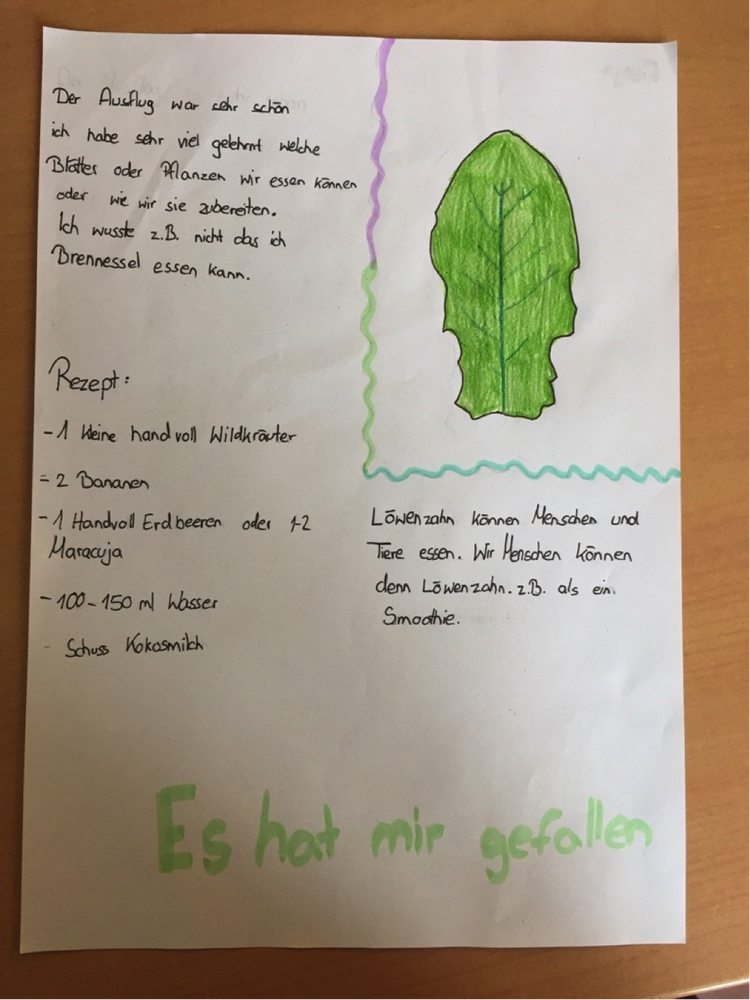 Der Ausflug war sehr schön
ich habe sehr viel gelehrnt welche
Blätter oder Pflanzen wir essen können
oder wie wir sie zubereiten.
Ich wusste z.B. nicht das ich
Brennessel essen kann.
Rezept:
- 1 kleine handvoll Wildkräuter
- 2 Bananen
- 1 Handvoll Erdbeeren oder 1-2
Maracuja
- 100-150 ml Wasser
- Schuss Kokosmilch
Löwenzahn können Menschen und
Tiere essen. Wir Menschen können
denn Löwenzahn. z.B. als ein.
Smoothie.
Es hat mir gefallen